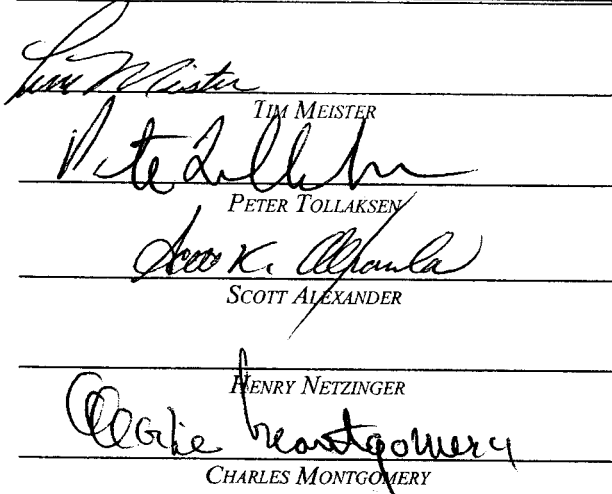 Tim Meister
TIM MEISTER
Pete Tollaksen
PETER TOLLAKSEN
Scott K. Alexander
SCOTT ALEXANDER
HENRY NETZINGER
Charlie Montgomery
CHARLES MONTGOMERY